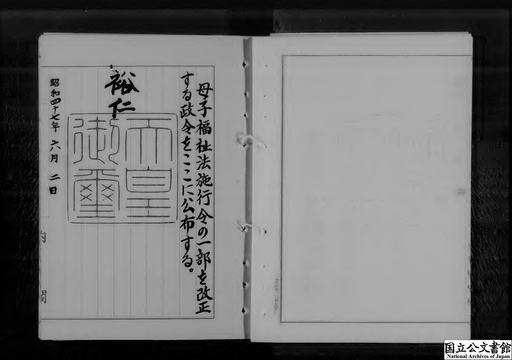 母子福祉法施行令の一部を改正
する政令をここに公布する。
裕仁
天皇
御璽
昭和四十七年 六月 二日
内閣
国立公文書館
National Archives of Japan